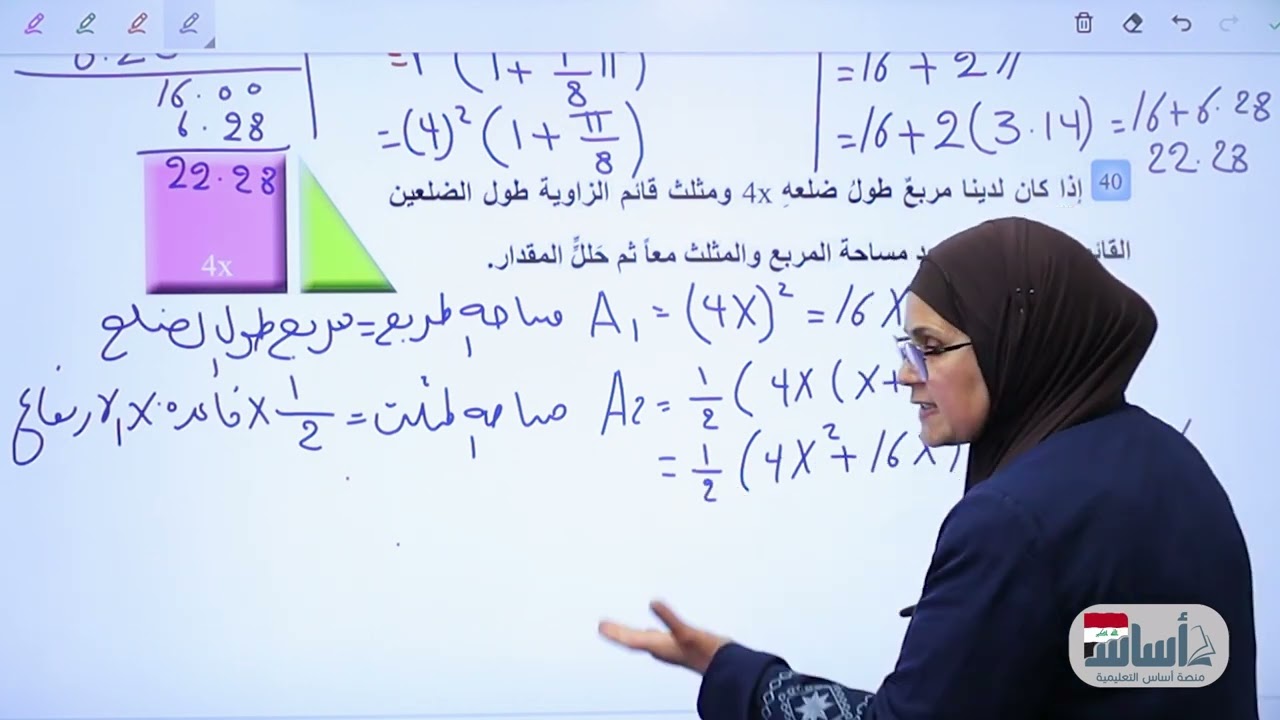 16.00
6.28
22.28
= 1 (1 + 1/8 π)
= (4)² (1 + π/8)
= 16 + 2π
= 16 + 2(3.14) = 16 + 6.28
22.28
40 إذا كان لدينا مربعٌ طولُ ضلعهِ 4x ومثلث قائم الزاوية طول الضلعين
مساحة المربع والمثلث معاً ثم حَللِّ المقدار.
4x
A₁ = (4X)² = 16X مساحة المربع = مربع طول الضلع
A2 = 1/2 (4X (X+ مساحة المثلث = 1/2 × قاعدة × الارتفاع
= 1/2 (4X² + 16X)
أساس
منصة أساس التعليمية